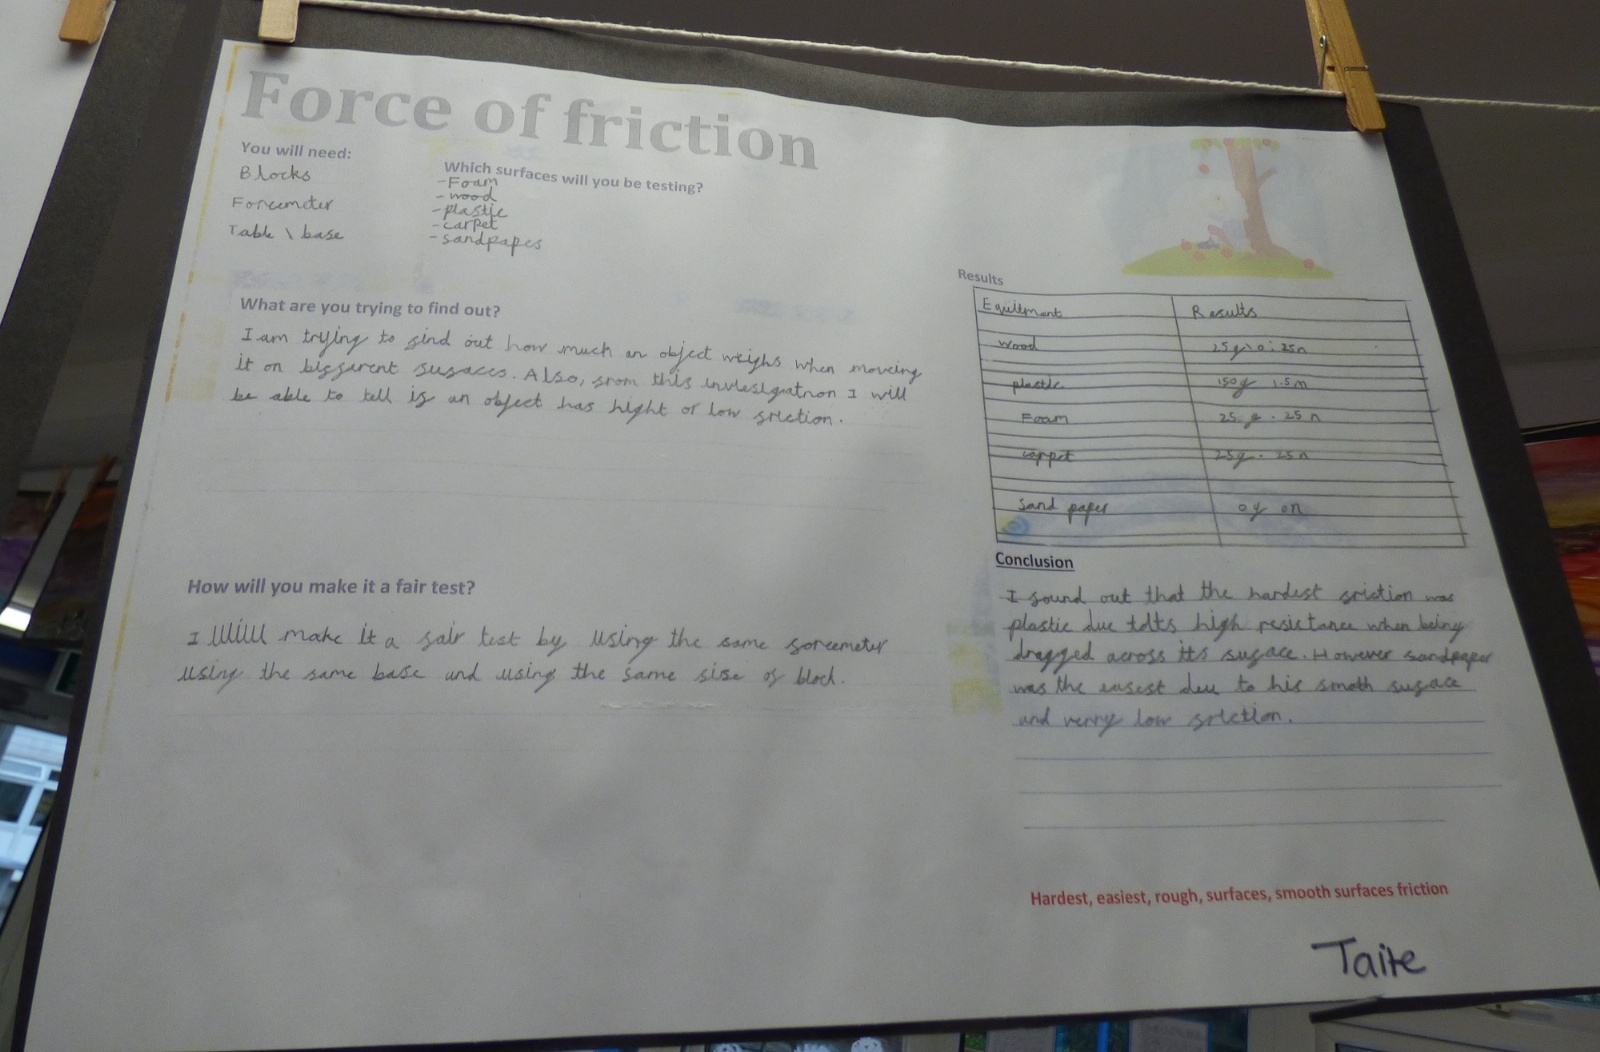 Force of friction
You will need:
Blocks
Forcemeter
Table \ base
Which surfaces will you be testing?
-Foam
-wood
-plastic
-carpet
-sandpapes
What are you trying to find out?
I am trying to find out how much an object weighs when moveing
it on different sufaces. Also, from this investigation I will
be able to tell if an object has hight or low friction.
How will you make it a fair test?
I will make it a fair test by using the same forcemeter
using the same base and using the same sise of block.
Results
Equitment Results
wood 25g\0.25n
plastic 150g 1.5n
Foam 25g .25n
carpet 25g. 25n
Sand paper 0g 0n
Conclusion
I found out that the hardest friction was
plastic due to its high resistance when being
dragged across its suface. However sandpaper
was the easest due to his smoth suface
and verry low friction.
Hardest, easiest, rough, surfaces, smooth surfaces friction
Taite